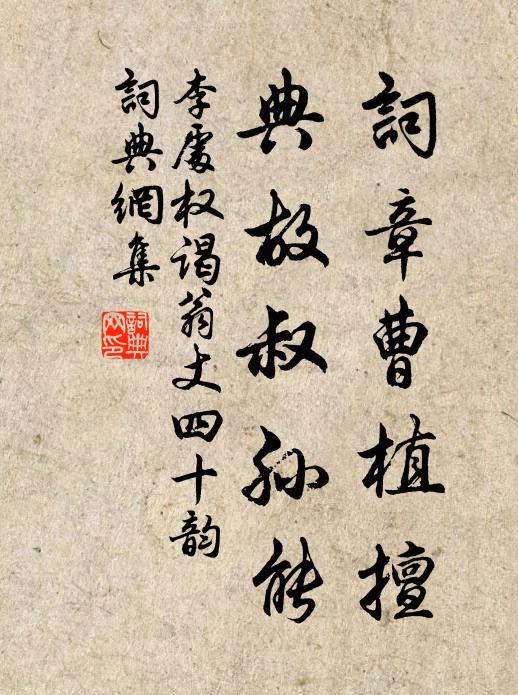 詞章曹植擅
典故叔孙能
李處权謁翁丈四十韵
詞典網集
詞典
网印